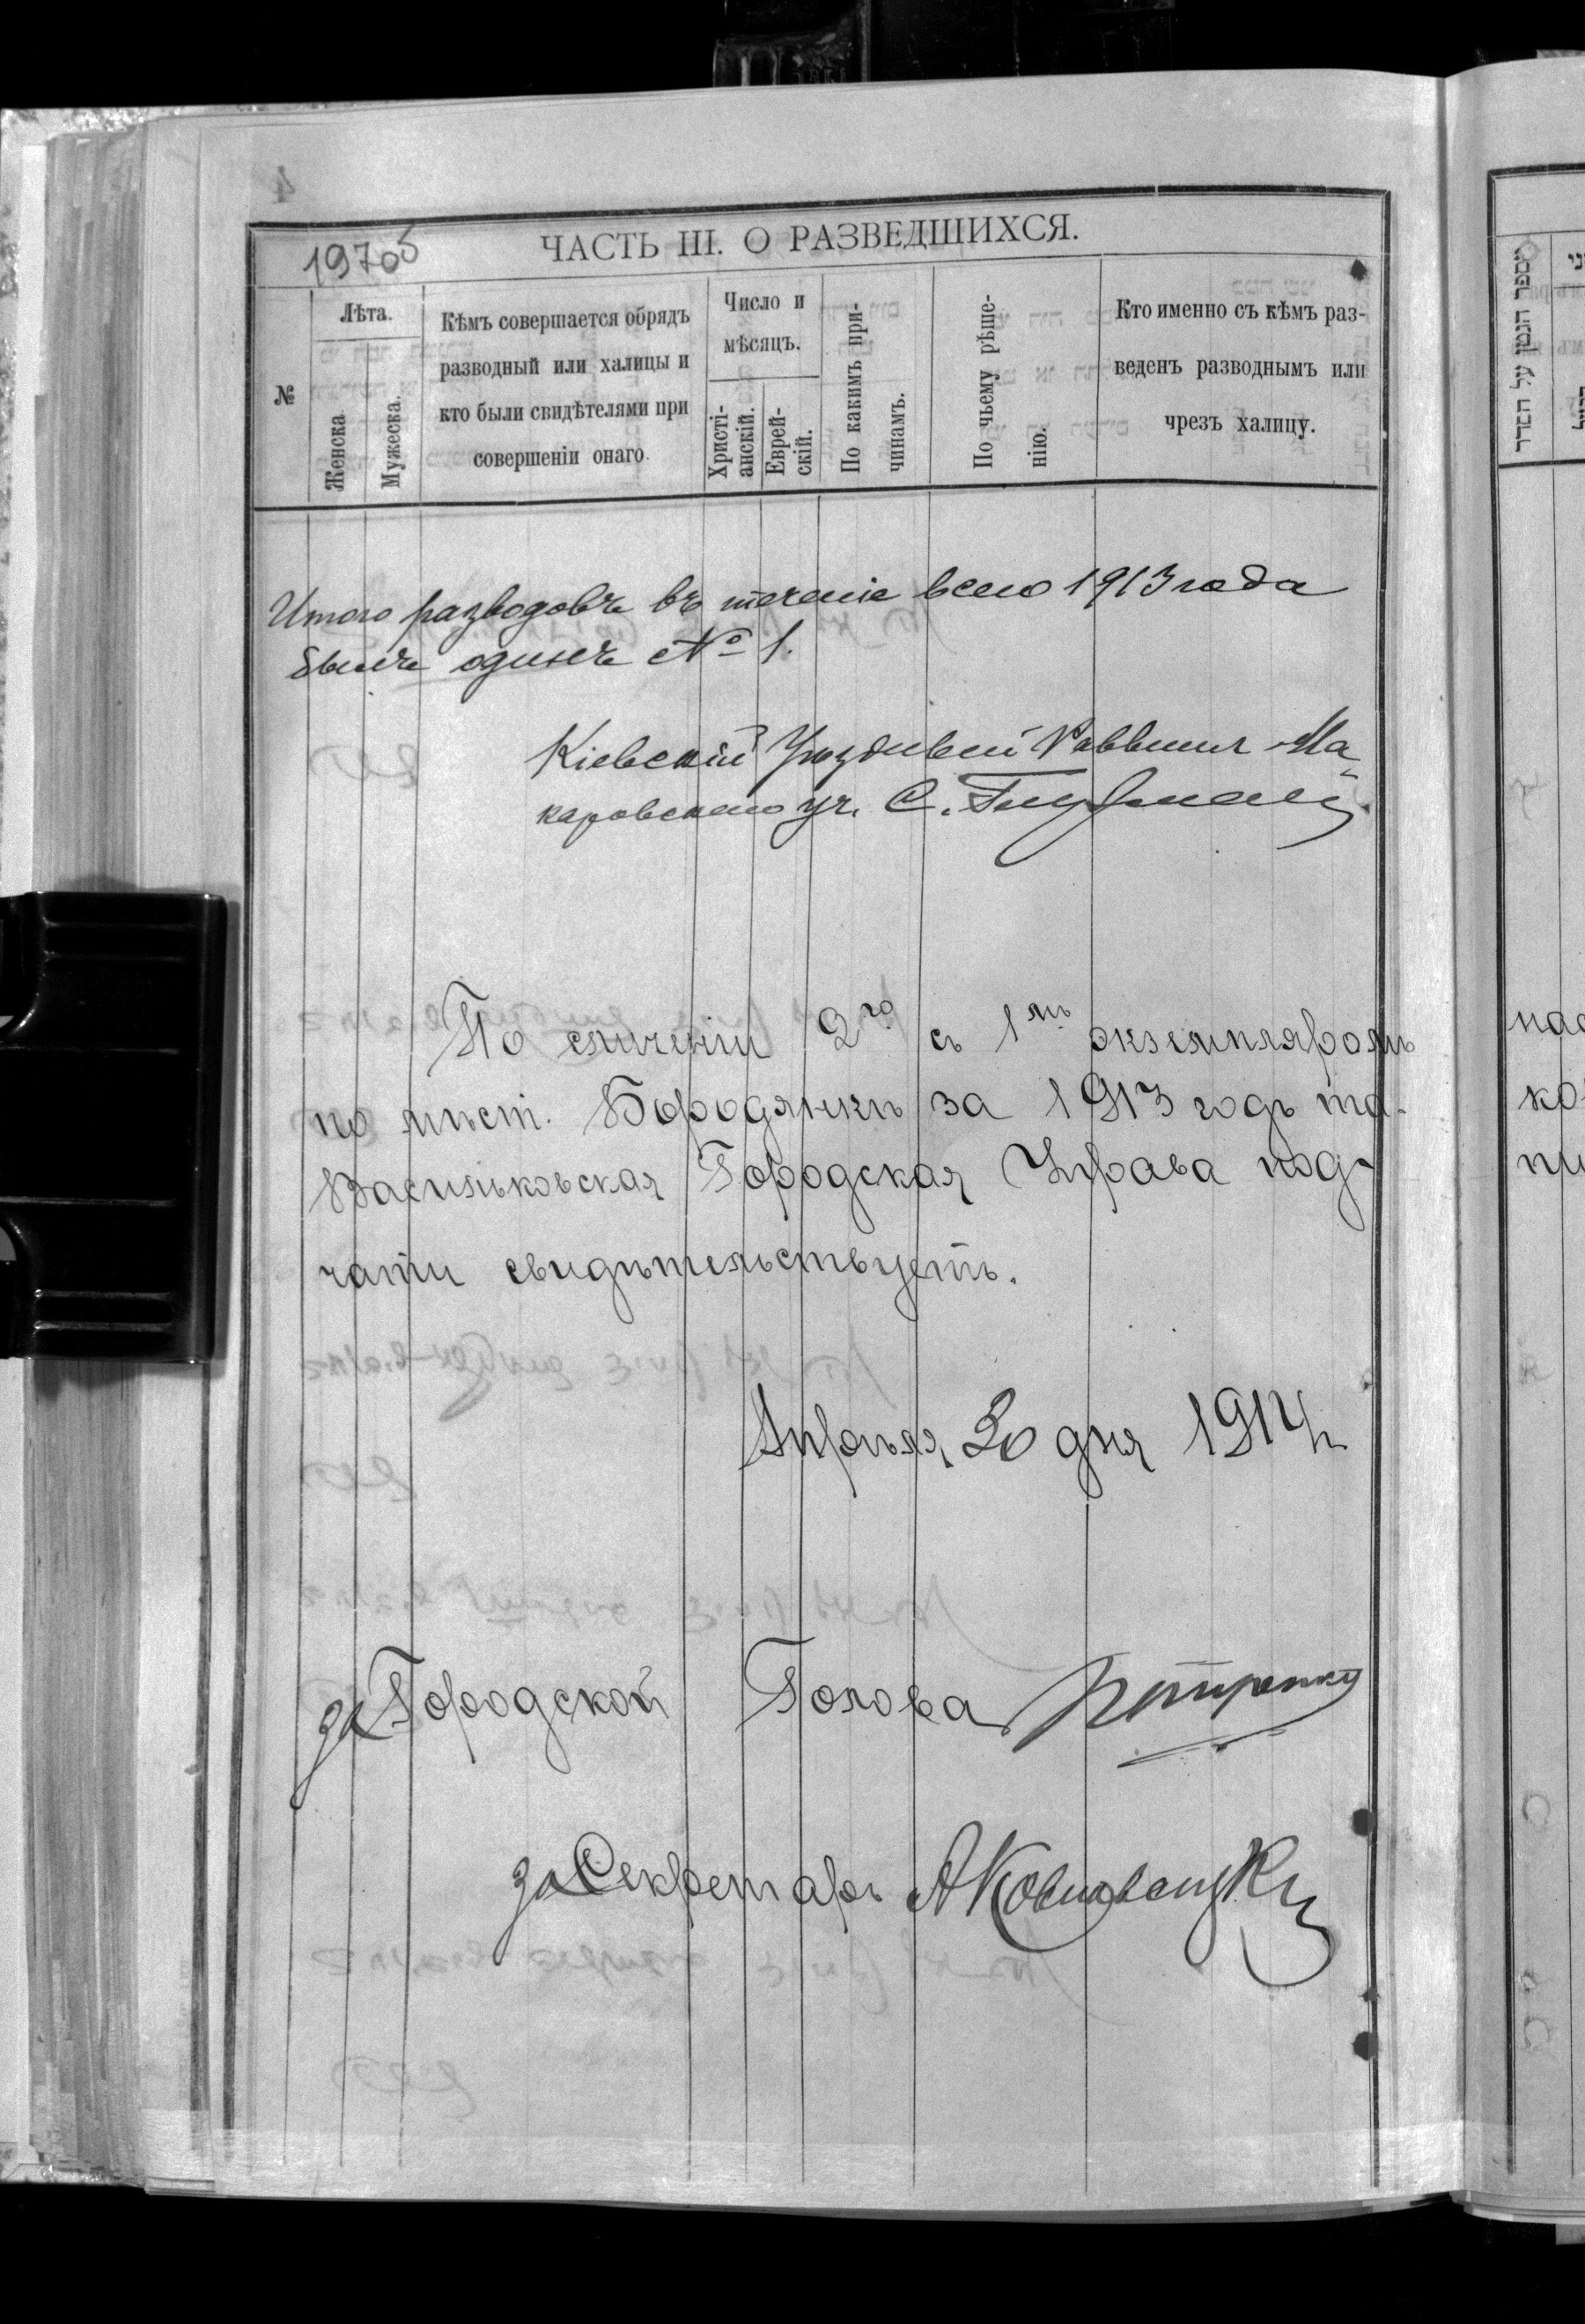 19705
ЧАСТЬ III. О РАЗВЕДШИХСЯ.
№
Лѣта.
Женска
Мужеска.
Кѣмъ совершается обрядъ
разводный или халицы и
кто были свидѣтелями при
совершеніи онаго.
Число и
мѣсяцъ.
Христі-
анскій.
Еврей-
скій.
По какимъ при-
чинамъ.
По чьему рѣше-
нію.
Кто именно съ кѣмъ раз-
веденъ разводнымъ или
чрезъ халицу.
Итого разводовъ въ теченіе всего 1913 года
былъ одинъ № 1.
Кіевскій Уѣздный Раввинъ Ма
каровскаго уч. С.
По сличеніи 2го съ 1мъ экземпляромъ
по мѣст. Бородянкѣ за 1913 годъ
Васильковская Городская Управа
свидѣтельствуетъ.
Апрѣля 30 дня 1914 г.
за Городской Голова Петренко
за Секретарь
מספר הגטן על הסדר